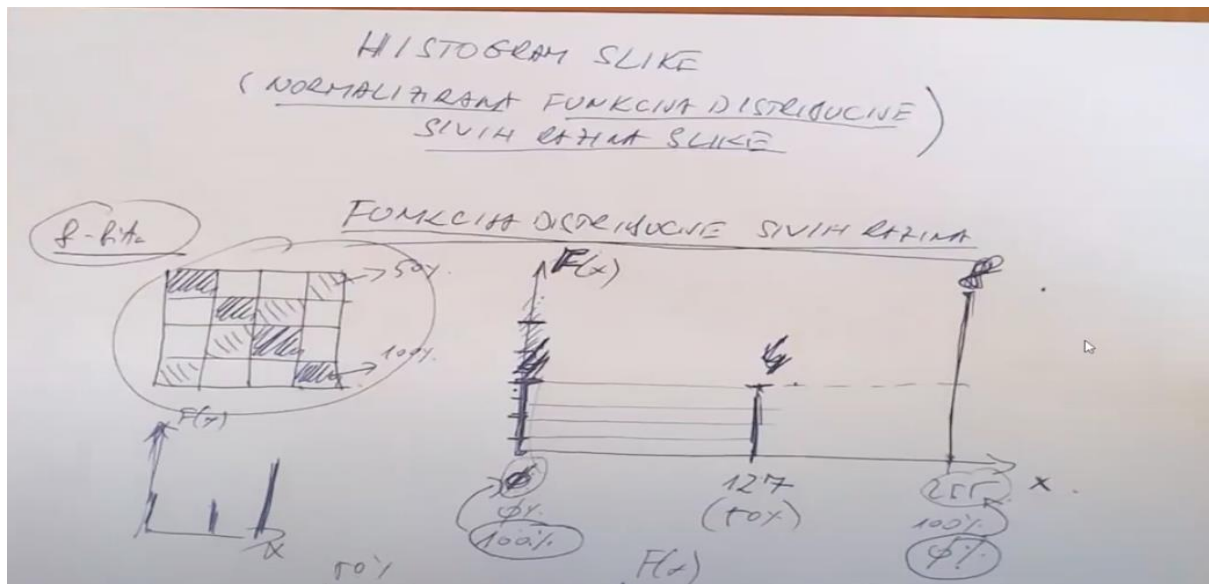 HISTOGRAM SLIKE
(NORMALIZIRANA FUNKCIJA DISTRIBUCIJE
SIVIH RAZINA SLIKE)
FUNKCIJA DISTRIBUCIJE SIVIH RAZINA
8-Bita
50%
100%
F(x)
8
4
4
F(x)
0 127 255 x
0% (50%) 100%
100% 0%
x
50% F(x)